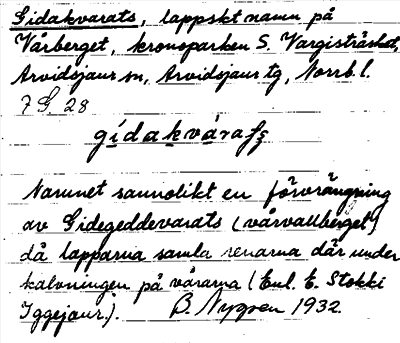 Gidakvarats, lappskt namn på
Vårberget, kronoparken S. Vargisträsket,
Arvidsjaur sn, Arvidsjaur tg, Norrb. l.
7 G 28
gídakvárats
Namnet sannolikt en förvrängning
av Gidegeddevarats (vårvallberget)
då lapparna samla renarna där under
kalvningen på vårarna (Enl. E. Stokki
Iggejaur.). B. Nygren 1932.